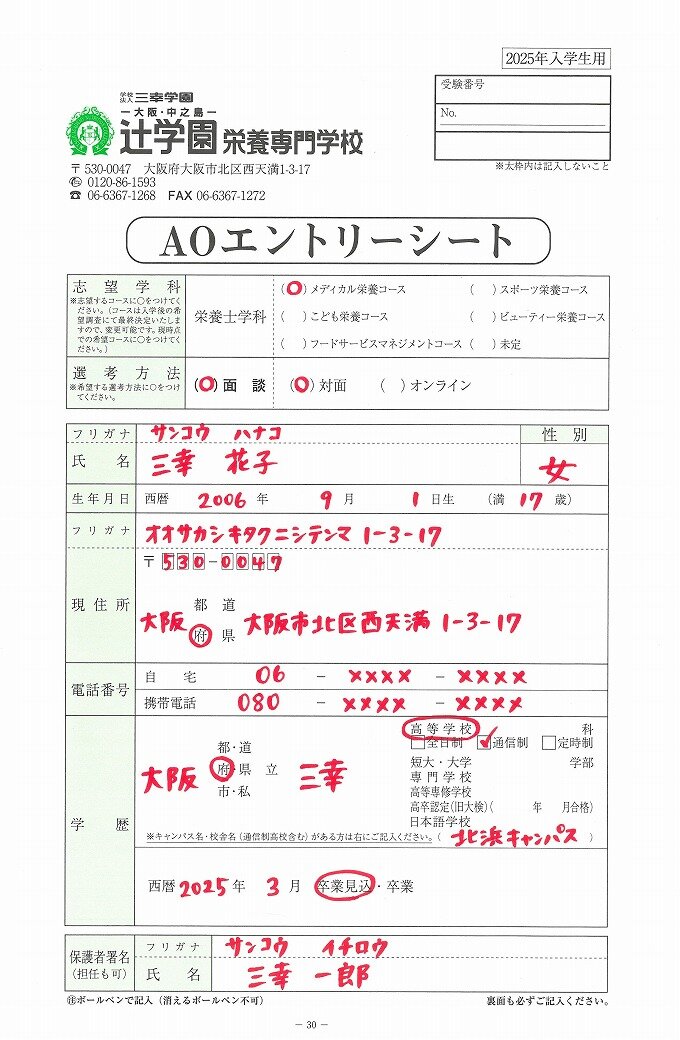 2025年入学生用
受験番号
No.
※太枠内は記入しないこと
学校法人 三幸学園
ー大阪・中之島ー
辻学園 栄養専門学校
〒530-0047 大阪府大阪市北区西天満1-3-17
0120-86-1593
☎ 06-6367-1268 FAX 06-6367-1272
AOエントリーシート
志望学科
※志望するコースに○をつけてください。(コースは入学後の希望調査にて最終決定いたしますので、変更可能です。現時点での希望コースに○をつけてください。)
栄養士学科
(○) メディカル栄養コース ( ) スポーツ栄養コース
( ) こども栄養コース ( ) ビューティー栄養コース
( ) フードサービスマネジメントコース ( ) 未定
選考方法
※希望する選考方法に○をつけてください。
(○) 面談 (○) 対面 ( ) オンライン
フリガナ サンコウ ハナコ 性別
氏名 三幸 花子 女
生年月日 西暦 2006 年 9 月 1 日生 (満 17 歳)
フリガナ オオサカシキタクニシテンマ 1-3-17
現住所
〒530-0047
大阪 都道府県 大阪市北区西天満 1-3-17
電話番号
自宅 06 - ×××× - ××××
携帯電話 080 - ×××× - ××××
学歴
大阪 都・道府・県立市・私 三幸
高等学校 科
□全日制 ☑通信制 □定時制
短大・大学 学部
専門学校
高等専修学校
高卒認定(旧大検)( 年 月合格)
日本語学校
※キャンパス名・校舎名(通信制高校含む)がある方は右にご記入ください。( 北浜キャンパス )
西暦 2025 年 3 月 卒業見込・卒業
保護者署名
(担任も可)
フリガナ サンコウ イチロウ
氏名 三幸 一郎
㊟ボールペンで記入(消えるボールペン不可)
裏面も必ずご記入ください。
― 30 ―